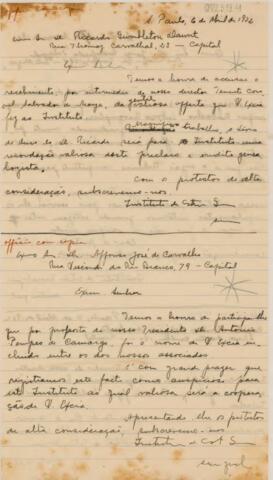 S. Paulo, 6 de Abril de 1936
Exmo Sr. Dr. Ricardo Gumbleton Daunt
Rua Thomaz Carvalhal, 28 — Capital
Temos a honra de accusar o
recebimento, por intermedio de nosso director Tenente Coro-
nel Salvador de Moya, da offerta que V. Excia
fez ao Instituto
trabalho, o livro
de Dr. Ricardo será para o Instituto uma
recordação valiosa deste preclaro e erudito genea-
logista.
Com os protestos de alta
consideração, subscrevemo-nos
Instituto de
officio com copia
Exmo Sr. Dr. Affonso José de Carvalho
Rua Visconde do Rio Branco, 79 — Capital
Exmo Senhor
Temos a honra de participar-lhe
que por proposta de nosso Presidente Dr. Antonio
Pompeo de Camargo, foi o nome de V. Excia in-
cluido entre os dos nossos associados.
É com grande prazer que
registramos este facto como auspicioso para
este Instituto ao qual valiosa será a coopera-
ção de V. Excia.
Apresentando-lhe os protestos
de alta consideração, subscrevemo-nos
Instituto de